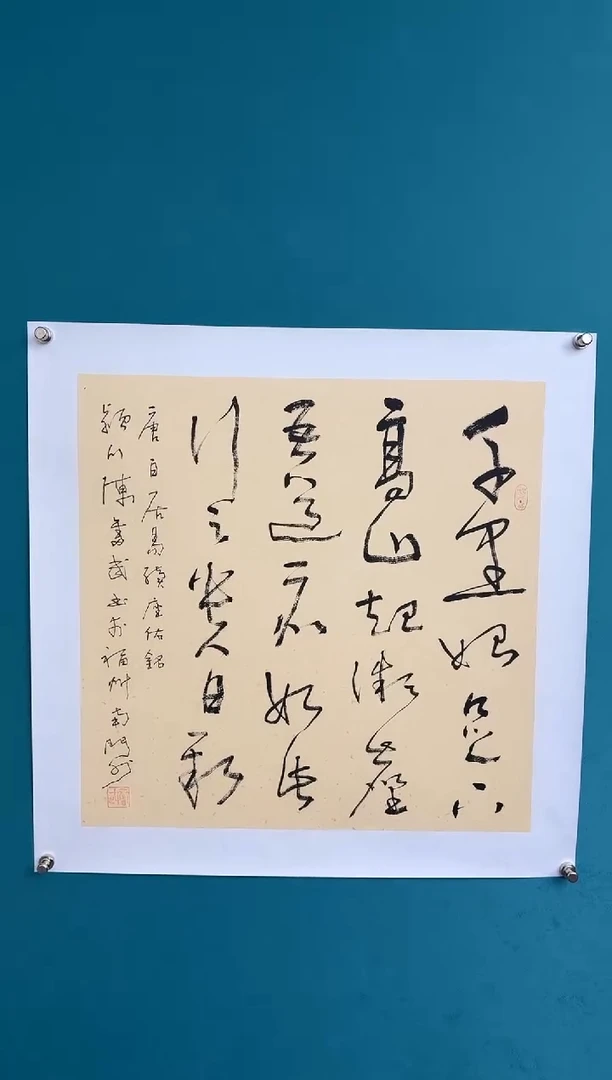 千里始足下
高山起微塵
吾道亦如此
行之貴日新
唐白居易續座佑銘
潁川陳書 於福州南門外